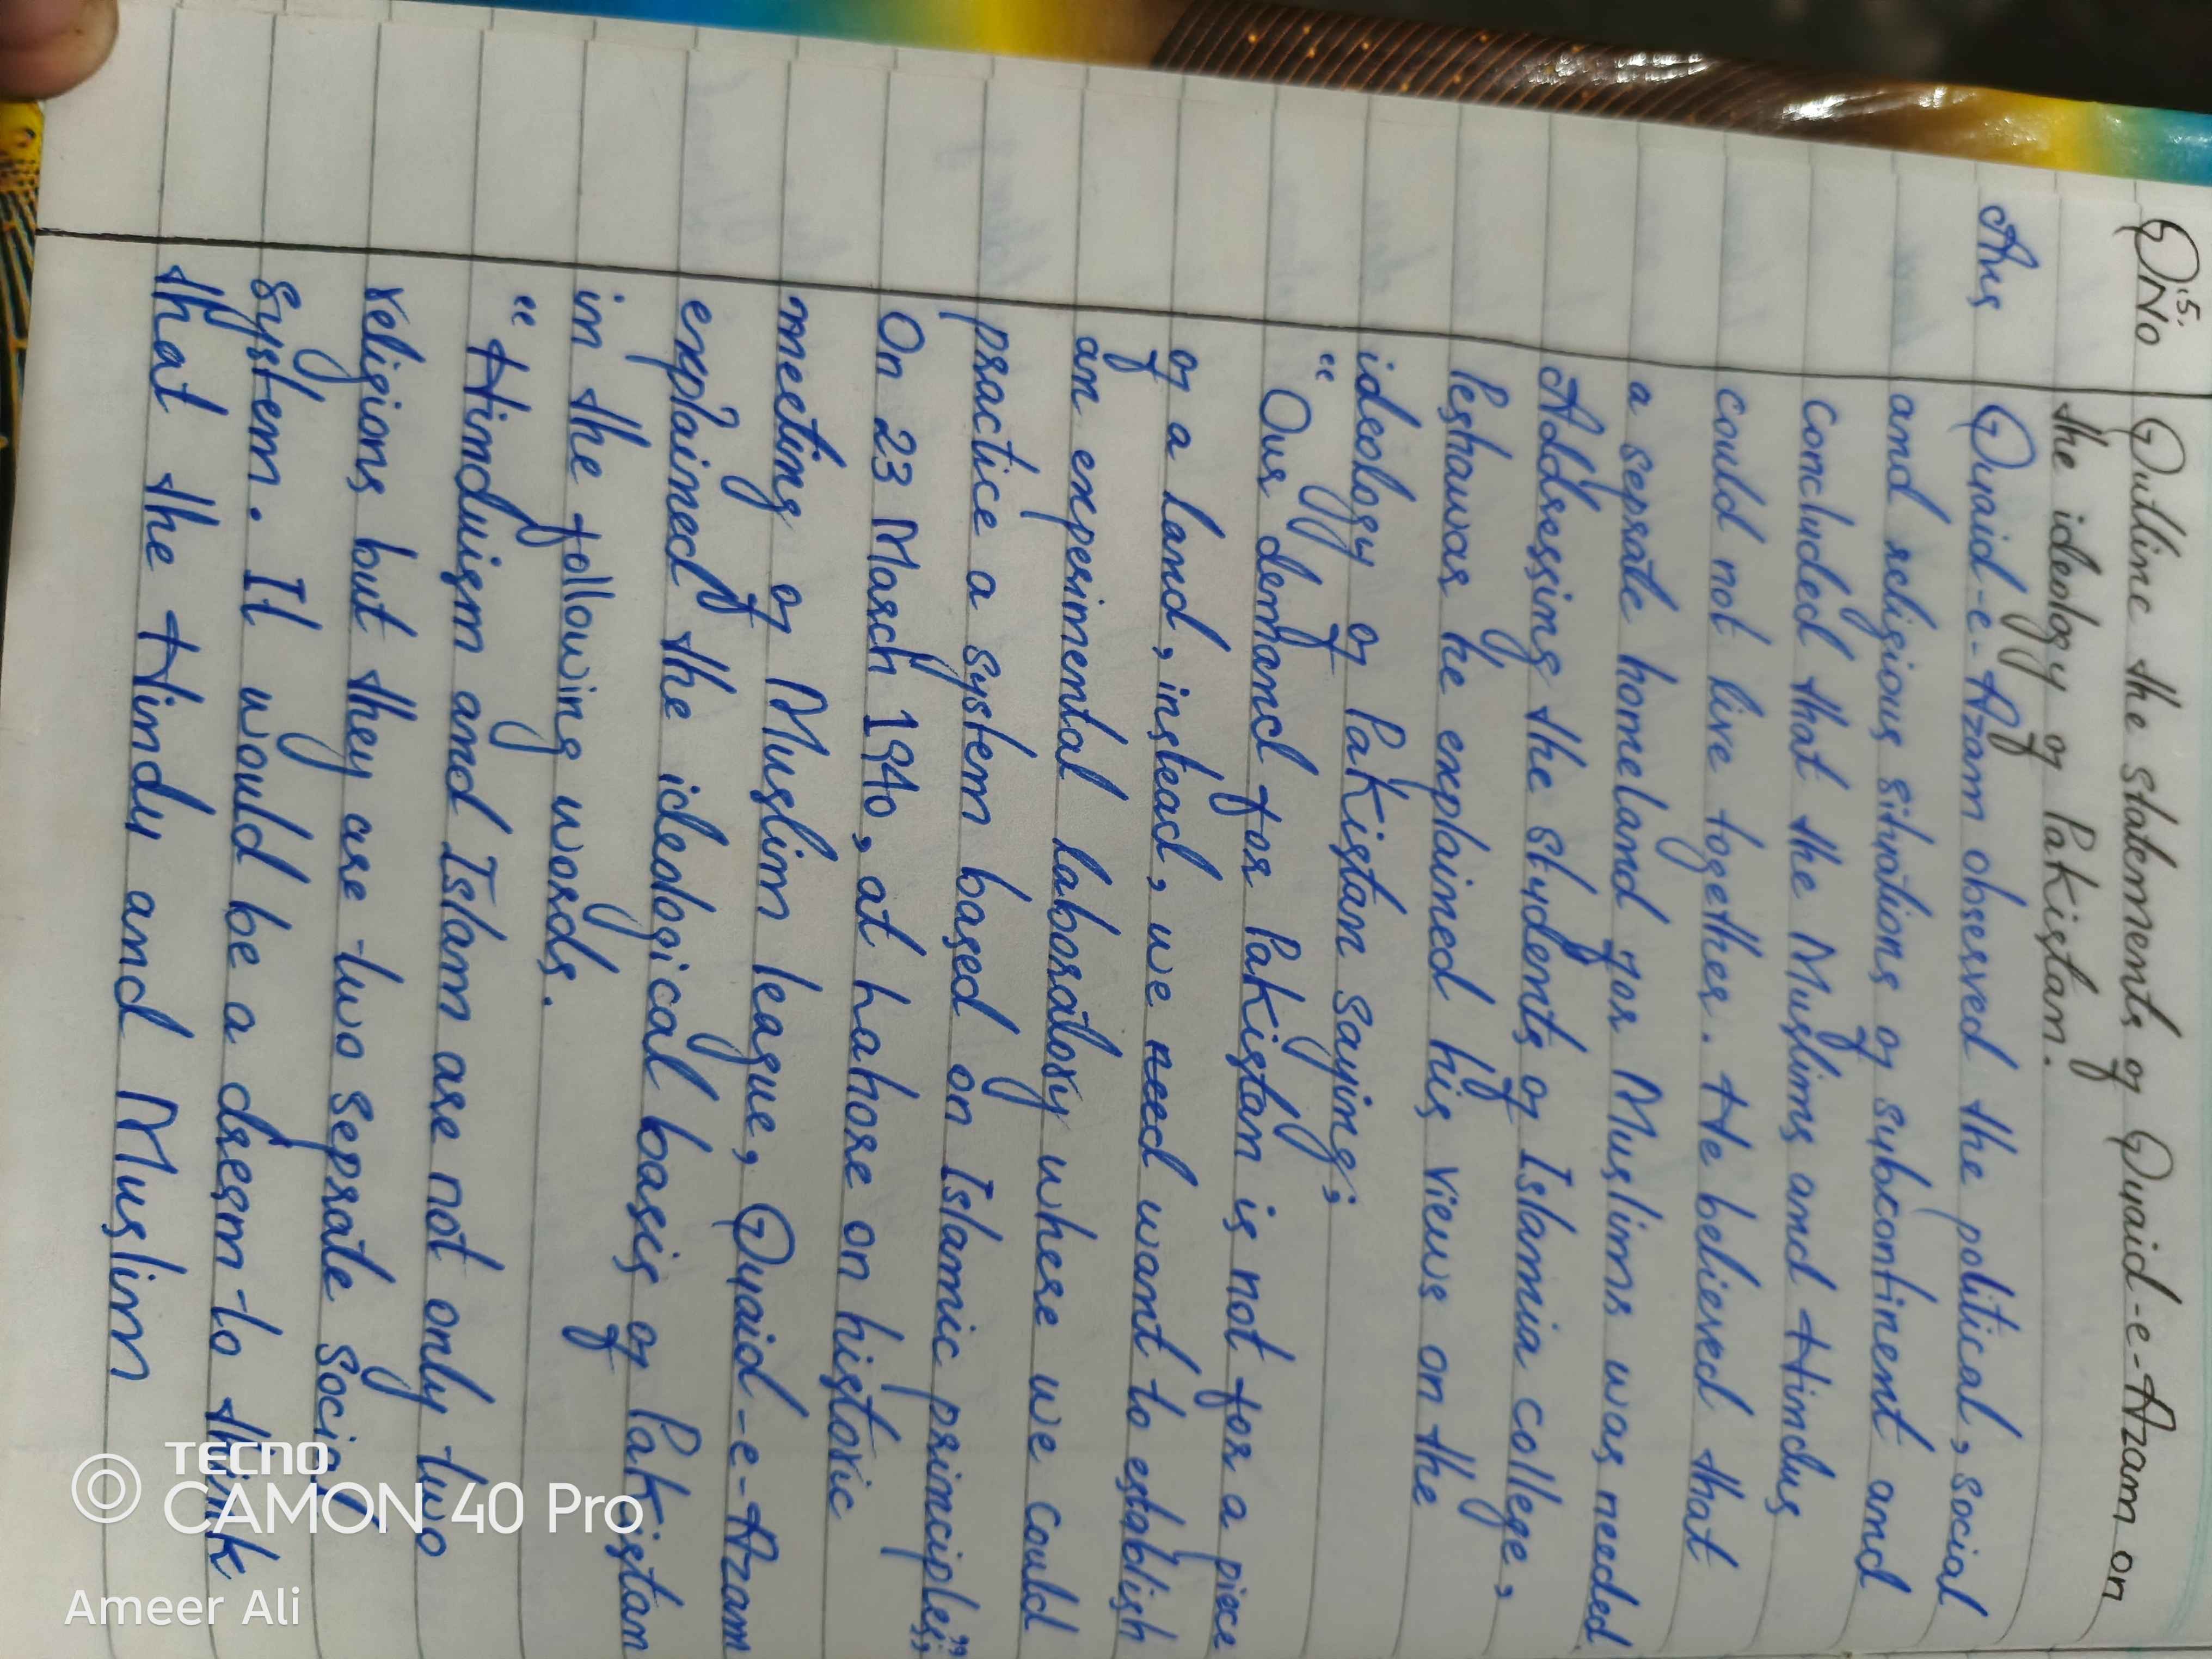 Q No .5. Outline the statements of Quaid-e-Azam on
the ideology of Pakistan.
Ans Quaid-e-Azam observed the political, social
and religious situations of subcontinent and
concluded that the Muslims and Hindus
could not live together. He believed that
a seprate homeland for Muslims was needed.
Addressing the students of Islamia college,
Peshawar he explained his views on the
ideology of Pakistan saying;
“Our demand for Pakistan is not for a piece
of a land, instead, we need want to establish
an experimental laboratory where we could
practice a system based on Islamic principles;”
On 23 March 1940, at Lahore on historic
meeting of Muslim league, Quaid-e-Azam
explained the ideological basis of Pakistan
in the following words.
“Hinduism and Islam are not only two
religions but they are two seprate social
system. It would be a dream to think
that the Hindu and Muslim
TECNO
CAMON 40 Pro
Ameer Ali